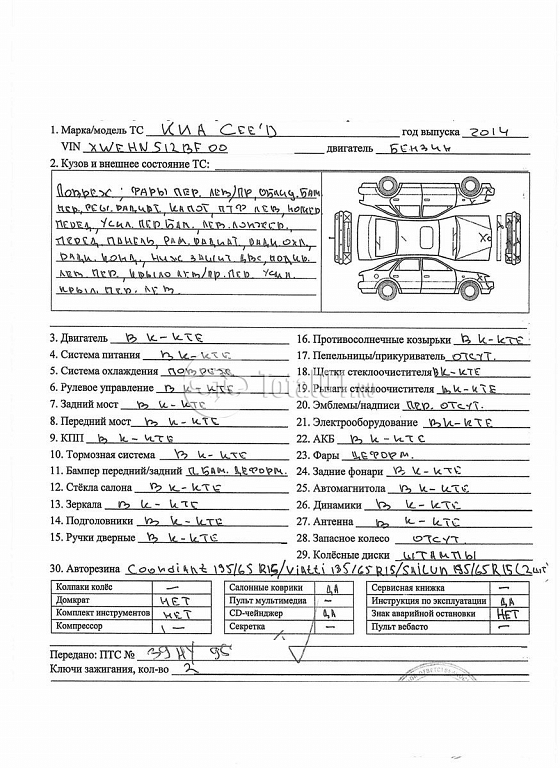 1. Марка/модель ТС КИА CEE'D год выпуска 2014
VIN XWEHN512BF 00 двигатель БЕНЗИН
2. Кузов и внешнее состояние ТС:
Поврежд; ФАРЫ ПЕР. ЛЕВ/ПР, ОБЛИЦ. БАМ.
ПЕР, РЕШ. РАДИАТ, КАПОТ, ПТФ ЛЕВ, НОМЕР
ПЕРЕД, УСИЛ. ПЕР. БАМ. ЛЕВ. ЛОНЖЕР.
ПЕРЕД. ПАНЕЛЬ, РАМ. РАДИАТ. РАДИ ОХЛ,
РАДИ. КОНД, НИЖ ЗАЩИТ. ДВС, ПОДКР.
ЛЕВ. ПЕР, КРЫЛО ЛЕВ/ПР. ПЕР. УСИЛ.
КРЫЛ. ПЕР. ЛЕВ.
3. Двигатель В К-КТЕ
4. Система питания В К-КТЕ
5. Система охлаждения ПОВРЕЖД
6. Рулевое управление В К-КТЕ
7. Задний мост В К-КТЕ
8. Передний мост В К-КТЕ
9. КПП В К-КТЕ
10. Тормозная система В К-КТЕ
11. Бампер передний/задний П. БАМ. ДЕФОРМ.
12. Стёкла салона В К-КТЕ
13. Зеркала В К-КТЕ
14. Подголовники В К-КТЕ
15. Ручки дверные В К-КТЕ
16. Противосолнечные козырьки В К-КТЕ
17. Пепельницы/прикуриватель ОТСУТ.
18. Щетки стеклоочистителя В К-КТЕ
19. Рычаги стеклоочистителя В К-КТЕ
20. Эмблемы/надписи ПЕР. ОТСУТ.
21. Электрооборудование В К-КТЕ
22. АКБ В К-КТЕ
23. Фары ДЕФОРМ.
24. Задние фонари В К-КТЕ
25. Автомагнитола В К-КТЕ
26. Динамики В К-КТЕ
27. Антенна В К-КТЕ
28. Запасное колесо ОТСУТ
29. Колёсные диски ШТАМПЫ
30. Авторезина Coordiant 195/65 R15/Viatti 195/65 R15/SAILUN 195/65 R15(2шт)
Колпаки колёс —
Домкрат НЕТ
Комплект инструментов НЕТ
Компрессор —
Салонные коврики ДА
Пульт мультимедиа —
CD-чейнджер ДА
Секретка —
Сервисная книжка —
Инструкция по эксплуатации ДА
Знак аварийной остановки НЕТ
Пульт вебасто —
Передано: ПТС № 39 НУ 95
Ключи зажигания, кол-во 2